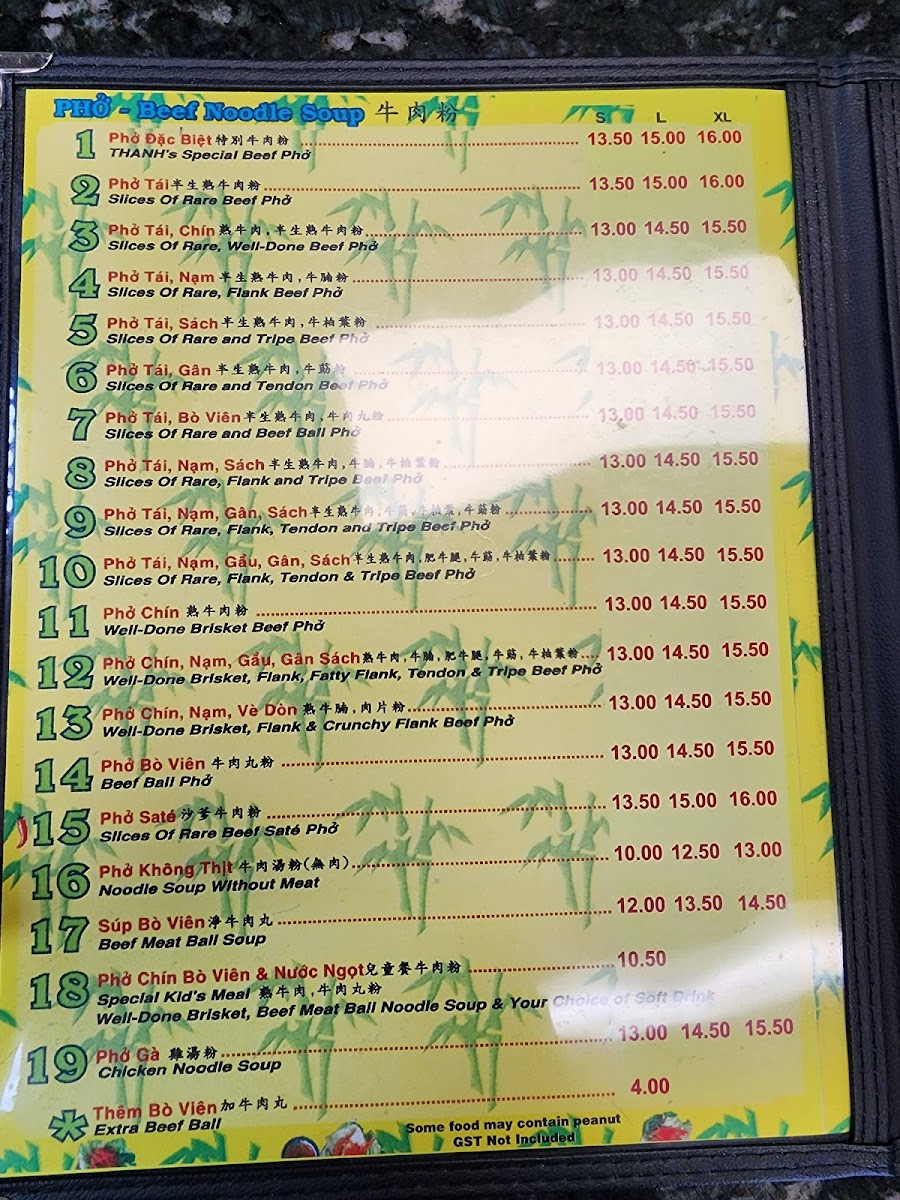 PHỞ - Beef Noodle Soup 牛肉粉 S L XL
1 Phở Đặc Biệt 特別牛肉粉 13.50 15.00 16.00
THANH's Special Beef Phở
2 Phở Tái 半生熟牛肉粉 13.50 15.00 16.00
Slices Of Rare Beef Phở
3 Phở Tái, Chín 熟牛肉,半生熟牛肉粉 13.00 14.50 15.50
Slices Of Rare, Well-Done Beef Phở
4 Phở Tái, Nạm 半生熟牛肉,牛腩粉 13.00 14.50 15.50
Slices Of Rare, Flank Beef Phở
5 Phở Tái, Sách 半生熟牛肉,牛柏葉粉 13.00 14.50 15.50
Slices Of Rare and Tripe Beef Phở
6 Phở Tái, Gân 半生熟牛肉,牛筋粉 13.00 14.50 15.50
Slices Of Rare and Tendon Beef Phở
7 Phở Tái, Bò Viên 半生熟牛肉,牛肉丸粉 13.00 14.50 15.50
Slices Of Rare and Beef Ball Phở
8 Phở Tái, Nạm, Sách 半生熟牛肉,牛腩,牛柏葉粉 13.00 14.50 15.50
Slices Of Rare, Flank and Tripe Beef Phở
9 Phở Tái, Nạm, Gân, Sách 半生熟牛肉,牛筋,牛柏葉,牛筋粉 13.00 14.50 15.50
Slices Of Rare, Flank, Tendon and Tripe Beef Phở
10 Phở Tái, Nạm, Gầu, Gân, Sách 半生熟牛肉,肥牛腿,牛筋,牛柏葉粉 13.00 14.50 15.50
Slices Of Rare, Flank, Tendon & Tripe Beef Phở
11 Phở Chín 熟牛肉粉 13.00 14.50 15.50
Well-Done Brisket Beef Phở
12 Phở Chín, Nạm, Gầu, Gân Sách 熟牛肉,牛腩,肥牛腿,牛筋,牛柏葉粉 13.00 14.50 15.50
Well-Done Brisket, Flank, Fatty Flank, Tendon & Tripe Beef Phở
13 Phở Chín, Nạm, Vè Dòn 熟牛腩,肉片粉 13.00 14.50 15.50
Well-Done Brisket, Flank & Crunchy Flank Beef Phở
14 Phở Bò Viên 牛肉丸粉 13.00 14.50 15.50
Beef Ball Phở
15 Phở Saté 沙爹牛肉粉 13.50 15.00 16.00
Slices Of Rare Beef Saté Phở
16 Phở Không Thịt 牛肉湯粉(無肉) 10.00 12.50 13.00
Noodle Soup Without Meat
17 Súp Bò Viên 淨牛肉丸 12.00 13.50 14.50
Beef Meat Ball Soup
18 Phở Chín Bò Viên & Nước Ngọt 兒童餐牛肉粉 10.50
Special Kid's Meal 熟牛肉,牛肉丸粉
Well-Done Brisket, Beef Meat Ball Noodle Soup & Your Choice of Soft Drink
19 Phở Gà 雞湯粉 13.00 14.50 15.50
Chicken Noodle Soup
* Thêm Bò Viên 加牛肉丸 4.00
Extra Beef Ball
Some food may contain peanut
GST Not Included